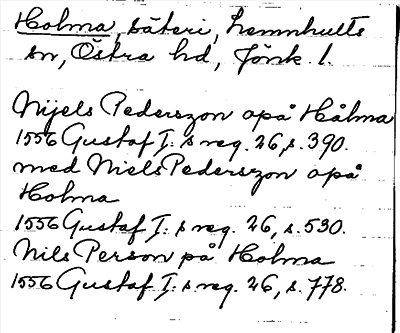 Holma, säteri, Lemnhults
sn, Östra hd, Jönk. l.
Nijels Pederszon opå Hålma
1556 Gustaf I: s reg. 26, s. 390.
med Niels Pederszon opå
Holma
1556 Gustaf I: s reg. 26, s. 530.
Nils Person på Holma
1556 Gustaf I: s reg. 26, s. 778.